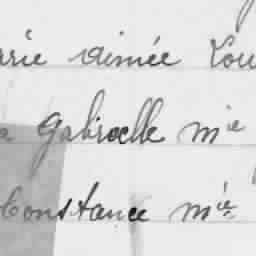 arie aimée Lou
a Gabrielle mie
Constance mie